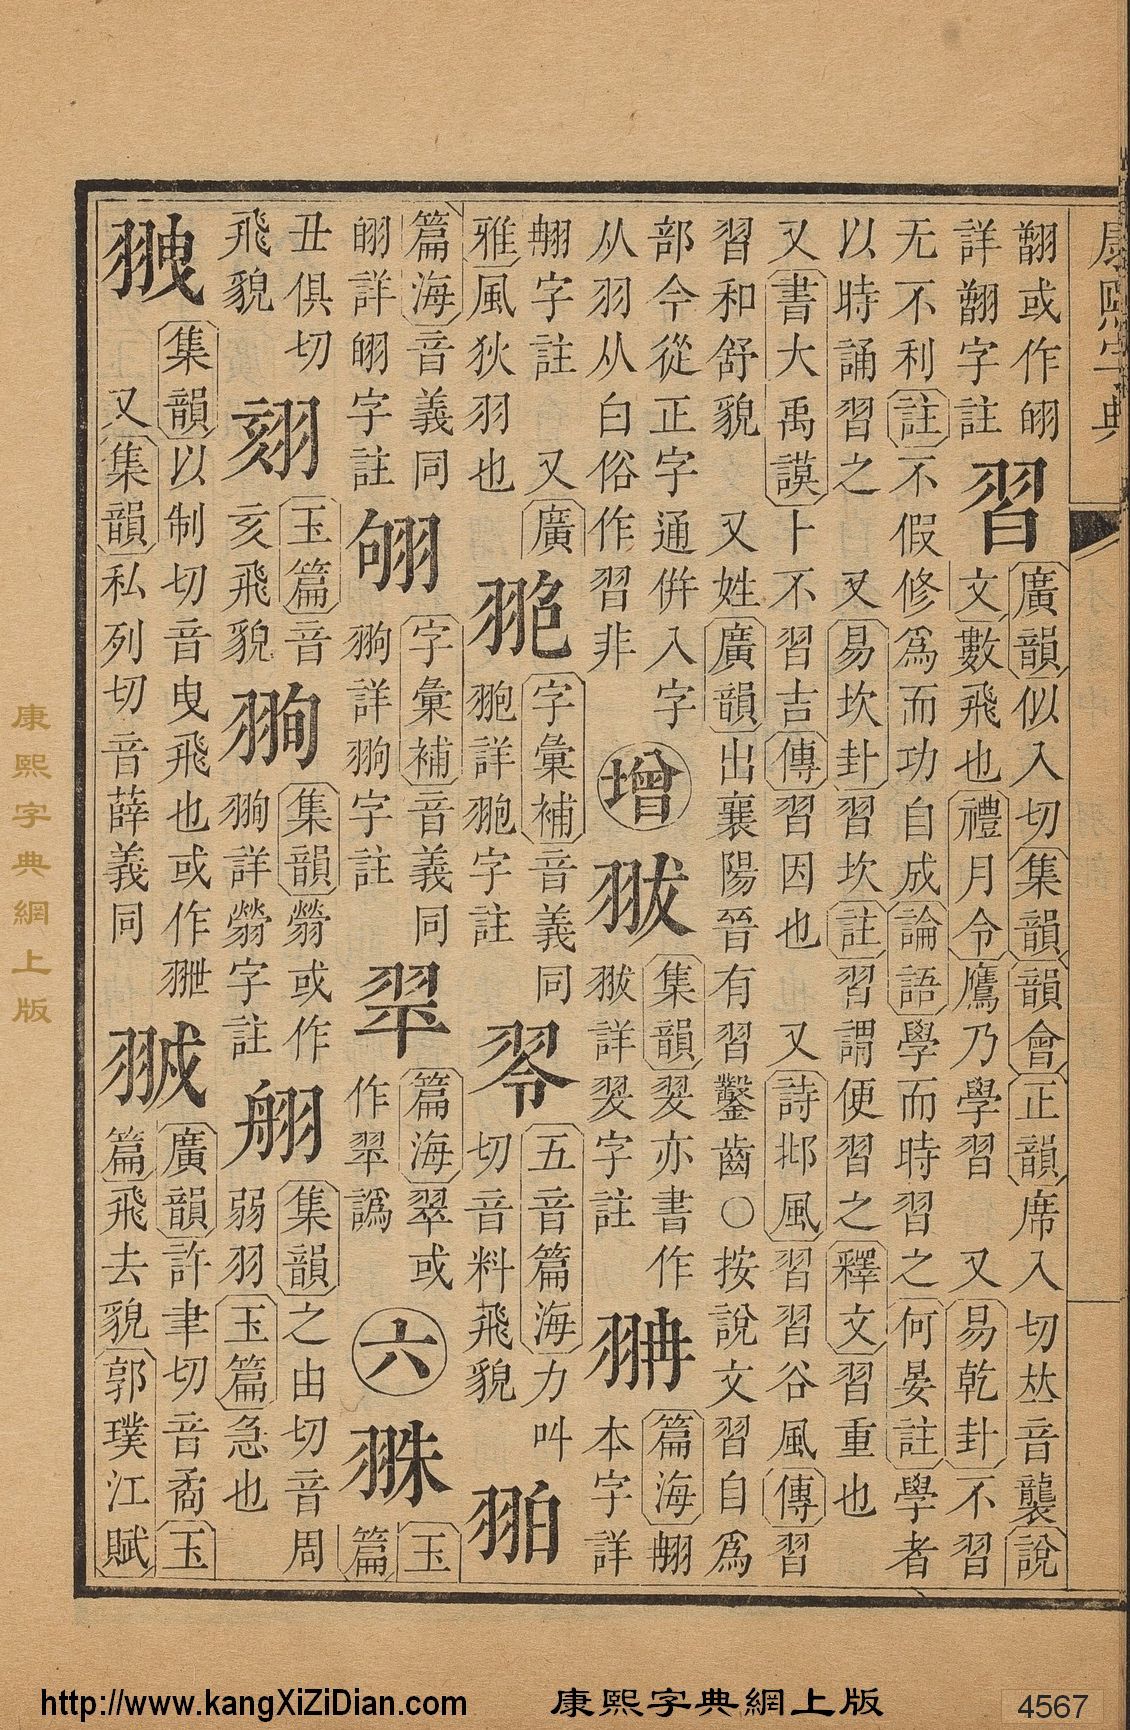 康熙字典
或作
詳字註
習
廣韻似入切集韻韻會正韻席入切𠀤音襲說
文數飛也禮月令鷹乃學習 又易乾卦不習
无不利註不假修爲而功自成論語學而時習之何晏註學者
以時誦習之 又易坎卦習坎註習謂便習之釋文習重也
又書大禹謨卜不習吉傳習因也 又詩邶風習習谷風傳習
習和舒貌 又姓廣韻出襄陽晉有習鑿齒○按說文習自爲
部今從正字通倂入字
从羽从白俗作習非
增
集韻翇亦書作
詳翇字註
篇海
本字詳
字註 又廣
雅風狄羽也
字彙補音義同
詳字註
五音篇海力叫
切音料飛貌
篇海音義同
詳字註
字彙補音義同
翑詳翑字註
篇海翠或
作翠譌
六
玉
篇
丑俱切
飛貌
玉篇音
亥飛貌
翑
集韻或作
翑詳字註
集韻之由切音周
弱羽玉篇急也
集韻以制切音曳飛也或作
又集韻私列切音薛義同
廣韻許聿切音矞玉
篇飛去貌郭璞江賦
康熙字典網上版
http://www.kangXiZiDian.com 康熙字典網上版 4567